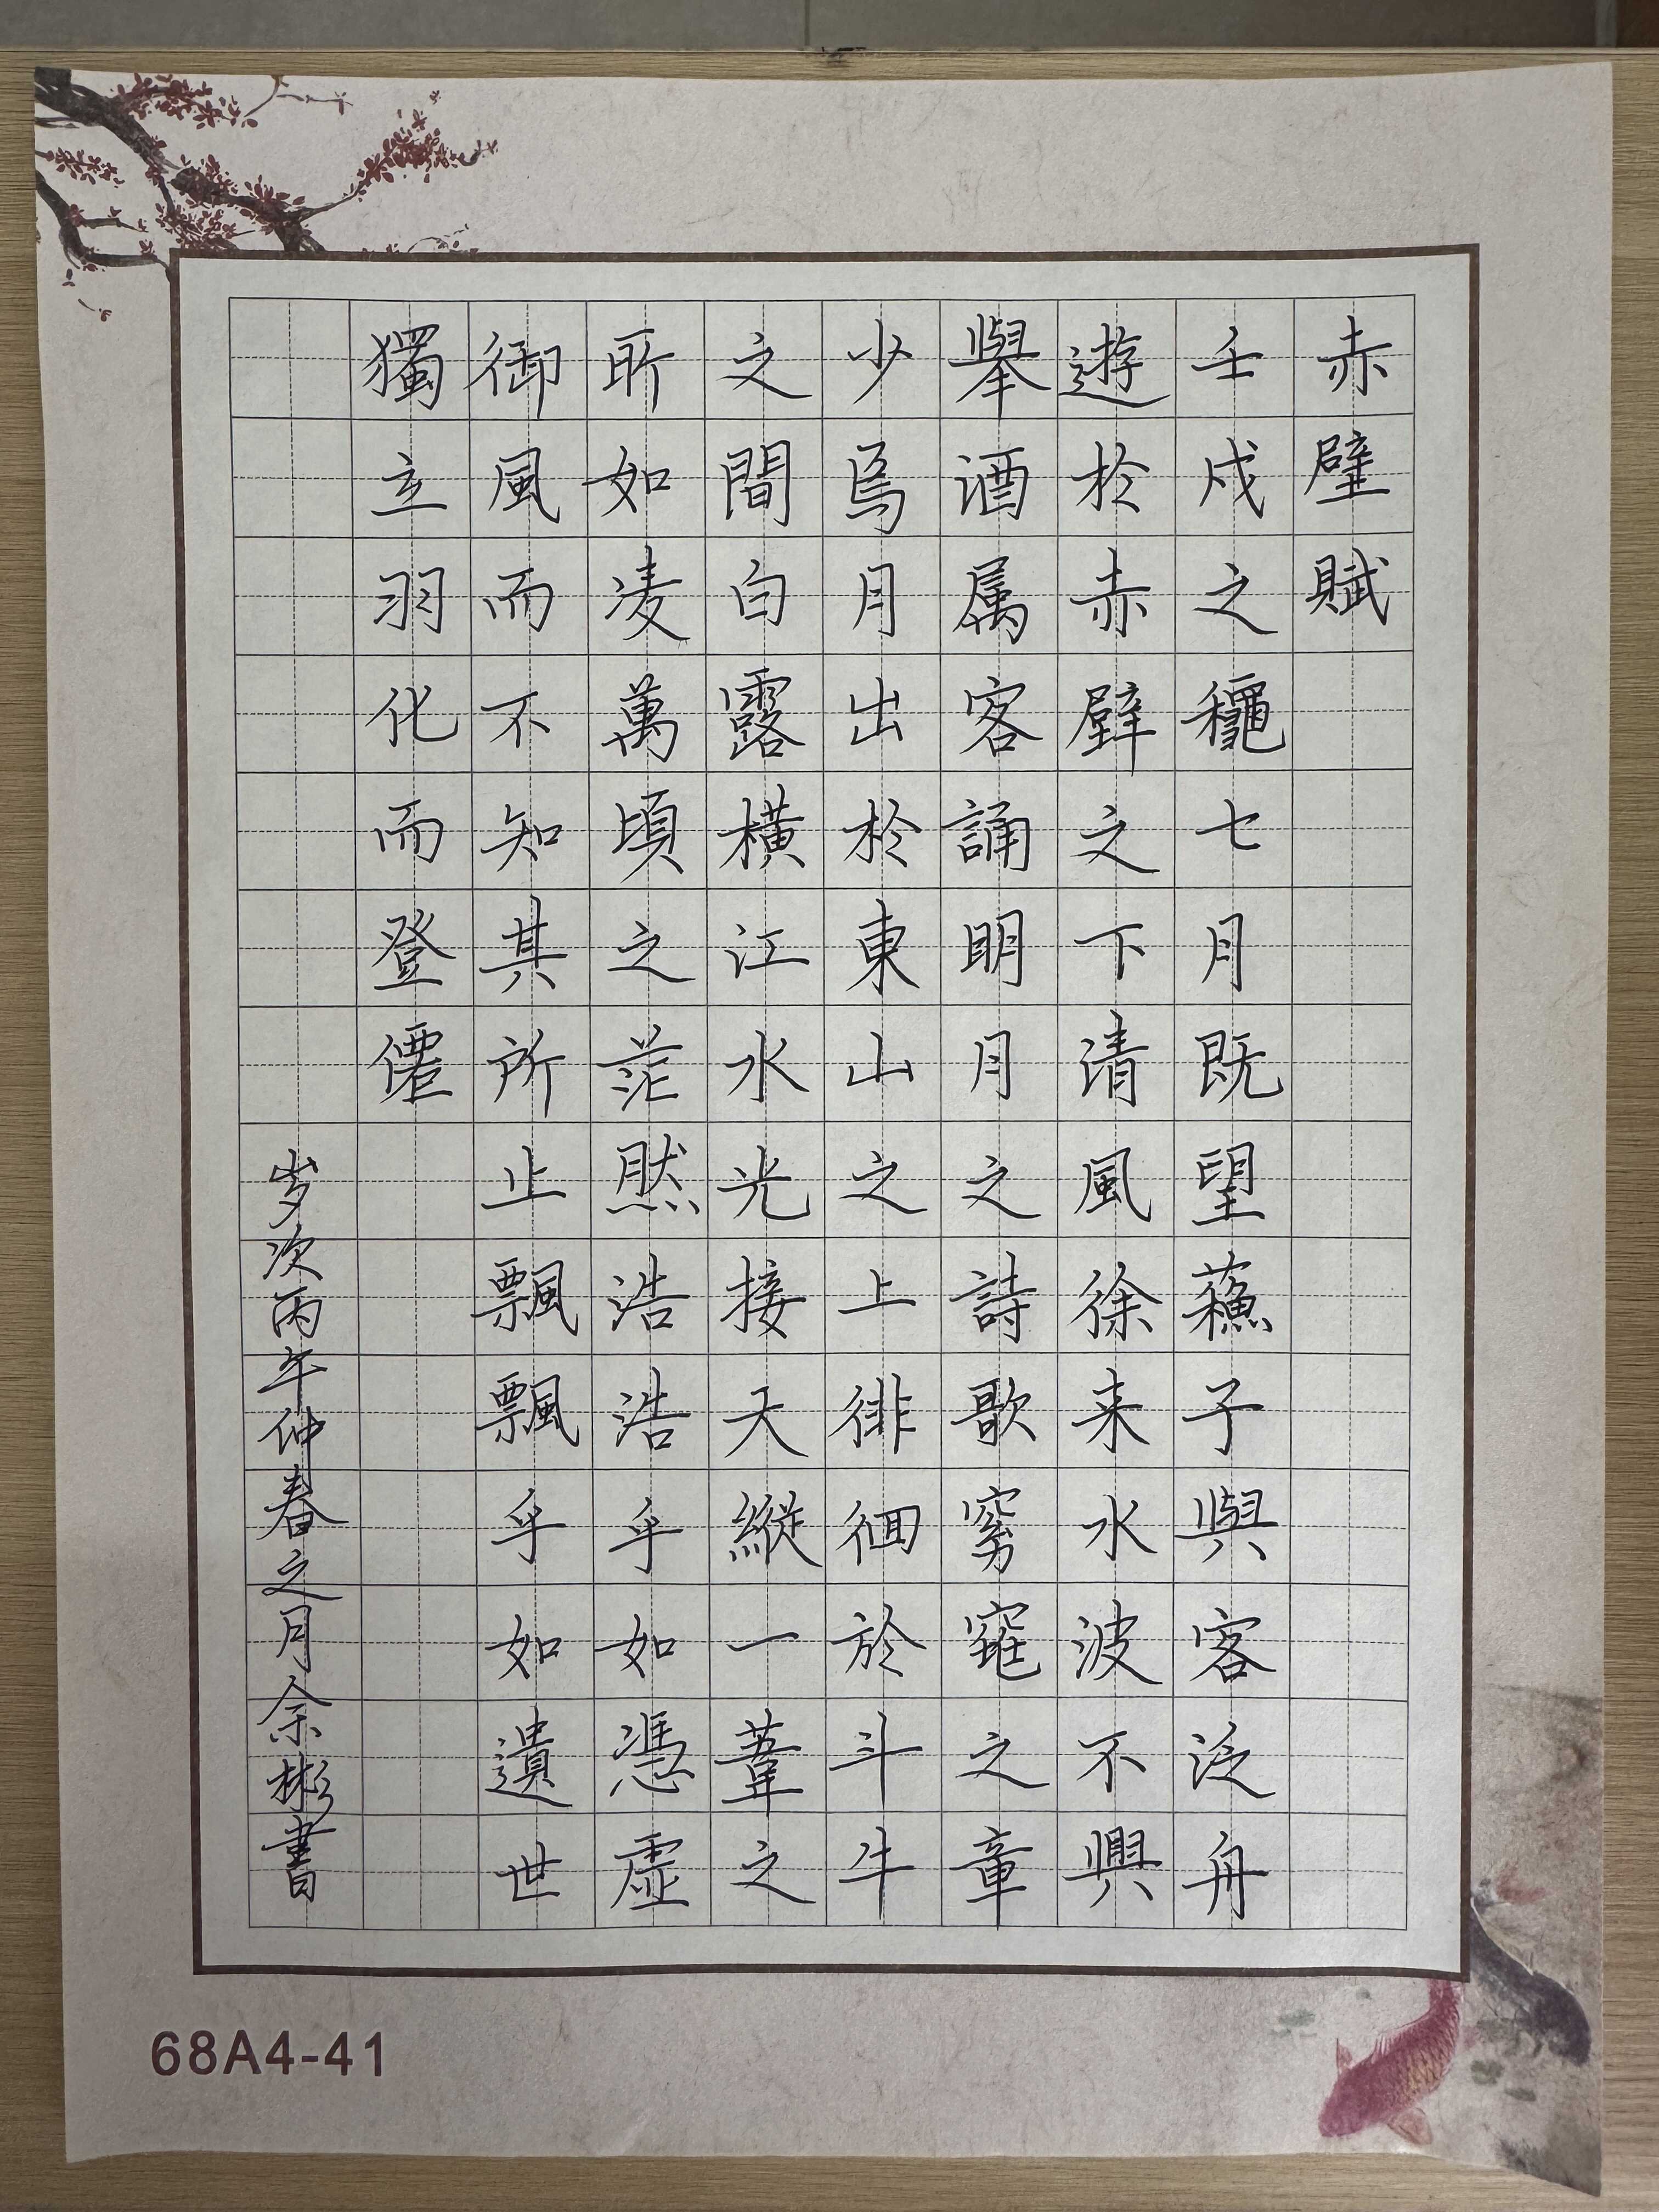 赤壁賦
壬戌之龝七月既望蘓子與客泛舟
遊於赤壁之下清風徐来水波不興
舉酒属客誦明月之詩歌窈窕之章
少焉月出於東山之上徘徊於斗牛
之間白露橫江水光接天縱一葦之
所如凌萬頃之茫然浩浩乎如馮虛
御風而不知其所止飄飄乎如遺世
獨立羽化而登僊
岁次丙午仲春之月余彬書
68A4-41